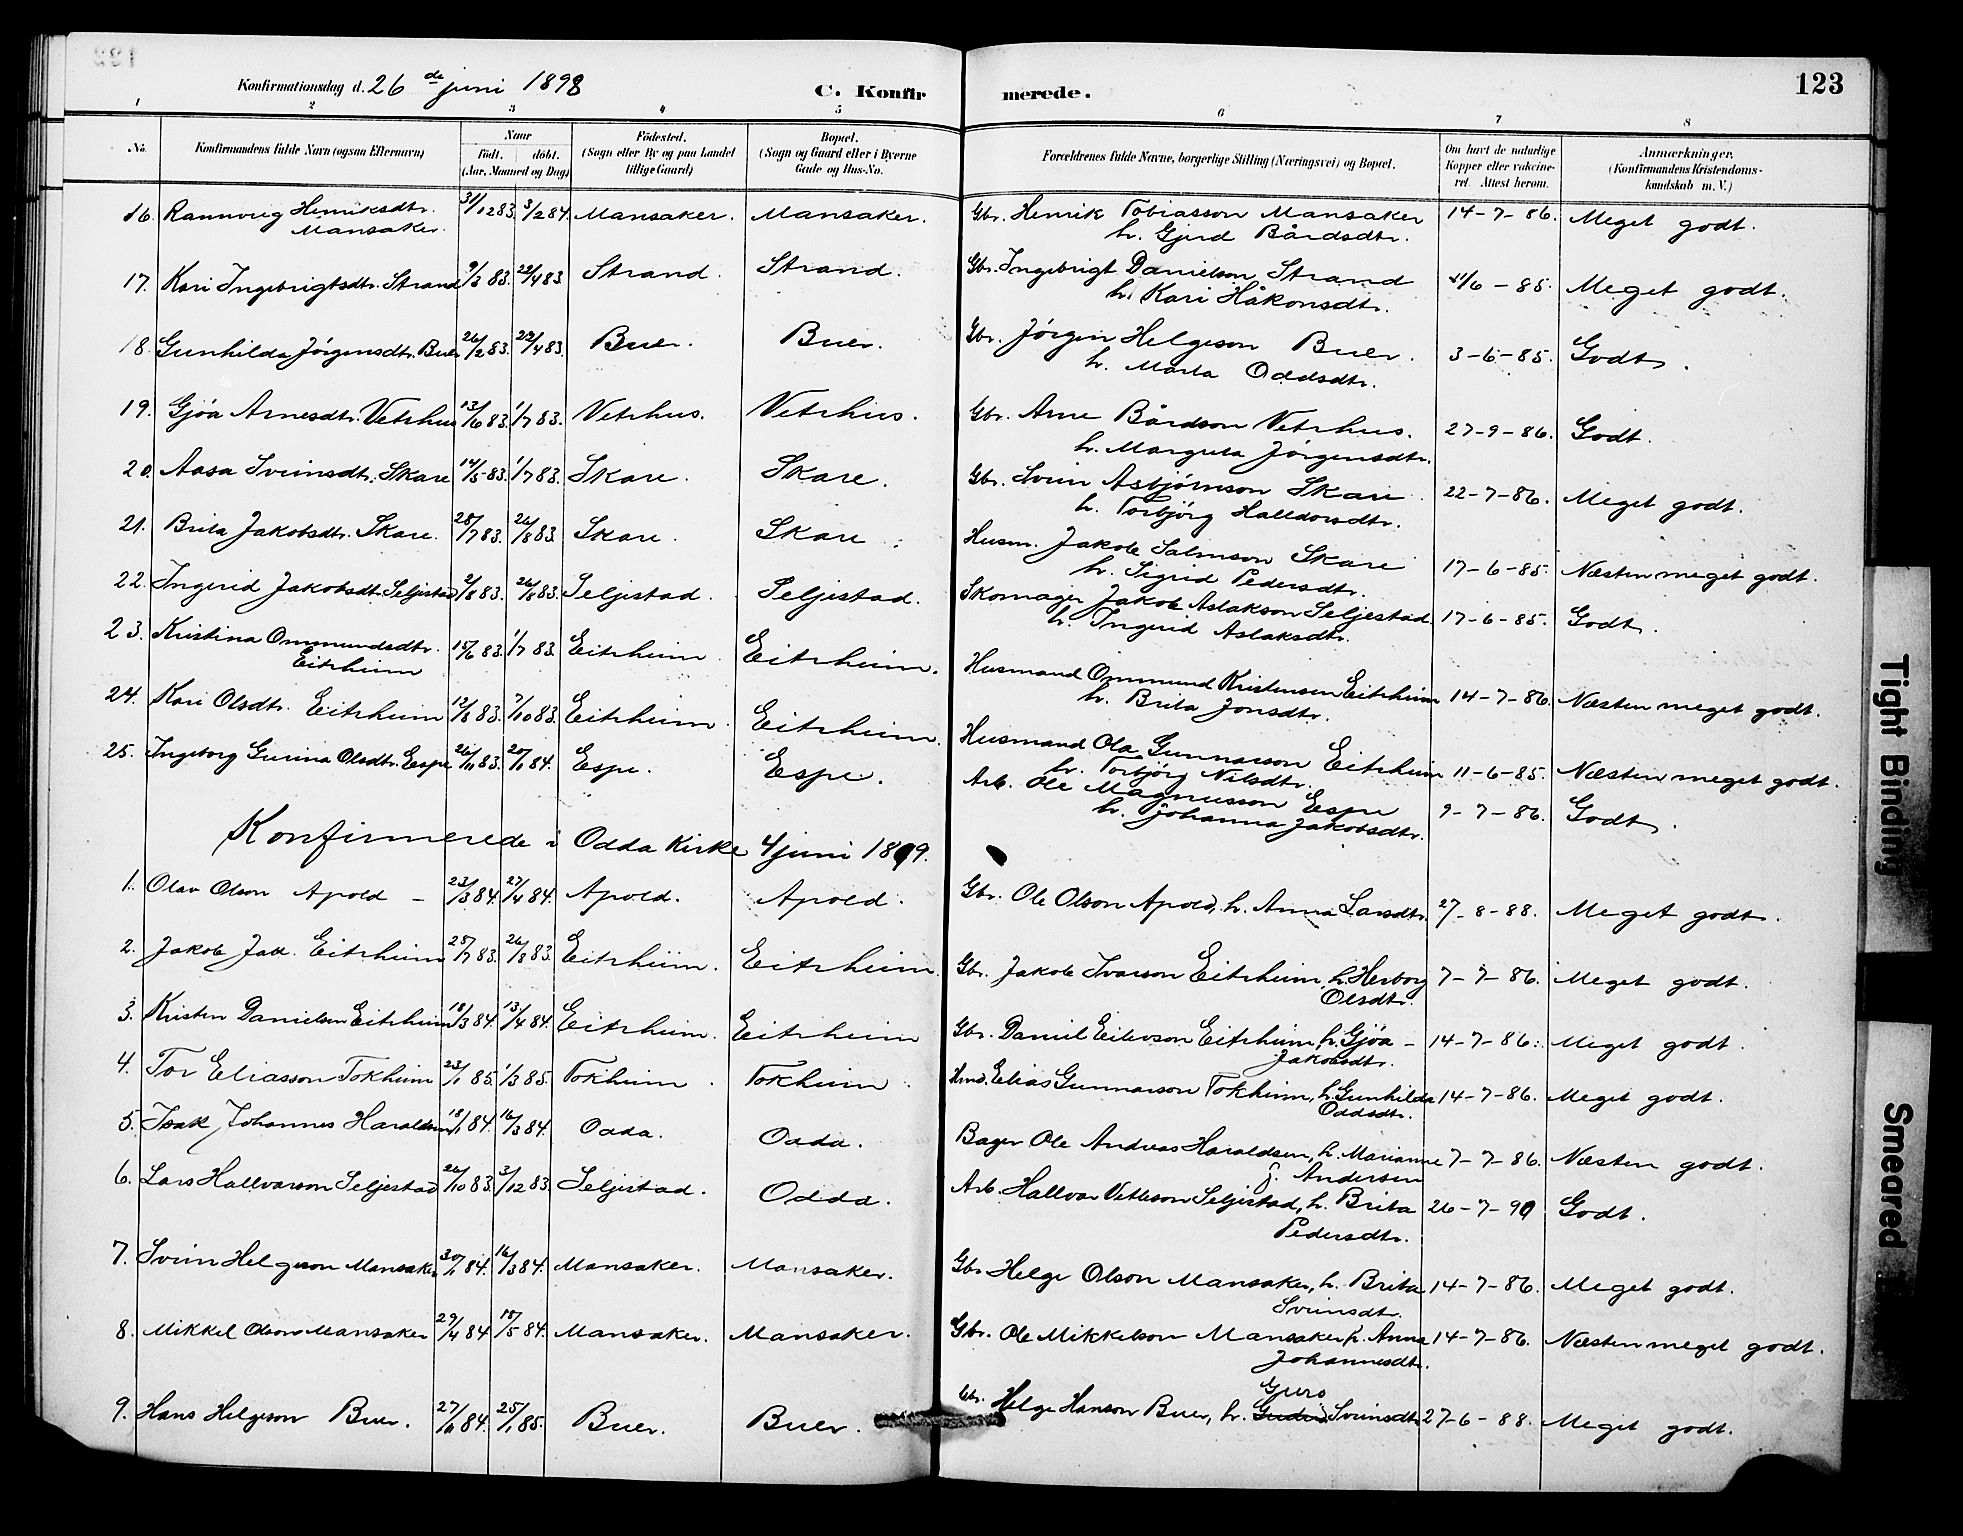 Konfirmationsdag d. 26de juni 1898
C. Konfirmerede.
123
1 2 3 4 5 6 7 8
No. Konfirmandens fulde Navn (ogsaa Efternavn) Naar födt. döbt. (Aar, Maaned og Dag) Födested. (Sogn eller By og paa Landet tillige Gaard) Bopæl. (Sogn og Gaard eller i Byerne Gade og Hus-No. Forældrenes fulde Navne, borgerlige Stilling (Næringsvei) og Bopæl. Om havt de naturlige Kopper eller vaccineret. Attest herom. Anmærkninger. (Konfirmandens Kristendomskundskab m. V.)
16. Rannveig Henriksdtr. Mansaker. 31/12 83. 3/2 84. Mansaker. Mansaker. Gbr. Henrik Tobiasson Mansaker h. Gjerd Bårdsdtr. 14-7-86. Meget godt.
17. Kari Ingebrigtsdtr. Strand 9/3 83. 22/4 83. Strand. Strand. Gbr. Ingebrigt Danielson Strand h. Kari Håkonsdtr. 11/6-85. Meget godt.
18. Gunhilda Jørgensdtr. Buer 26/2 83. 22/4 83. Buer. Buer. Gbr. Jørgen Helgeson Buer. h. Marta Oddsdtr. 3-6-85. Godt.
19. Gjøa Arnesdtr. Vetrhus 13/6 83. 1/7 83. Vetrhus. Vetrhus. Gbr. Arne Bårdson Vetrhus. h. Margreta Jørgensdtr. 27-9-86. Godt.
20. Aasa Sveinsdtr. Skare 14/5-83. 1/7 83. Skare. Skare. Gbr. Svein Asbjørnson Skare. h. Torbjørg Halldorsdtr. 22-7-86. Meget godt.
21. Brita Jakobsdtr. Skare. 28/7 83. 26/8 83. Skare. Skare. Husm. Jakob Salmson Skare h. Sigrid Pedersdtr. 17-6-85. Næsten meget godt.
22. Ingerid Jakobsdt. Seljestad 2/8 83. 26/8 83. Seljestad. Seljestad. Skomager Jakob Aslakson Seljestad. h. Ingerid Aslaksdtr. 17-6-85. Godt.
23. Kristina Ommundsdtr. Eitrheim 15/6 83. 1/7 83. Eitrheim. Eitrheim. Husmand Ommund Kristensen Eitrheim h. Brita Jonsdtr. 14-7-86. Næsten meget godt.
24. Kari Olsdtr. Eitrheim 12/8 83. 7/10 83. Eitrheim. Eitrheim. Husmand Ola Gunnarson Eitrheim h. Torbjörg Nilsdtr. 11-6-85. Næsten meget godt.
25. Ingeborg Gurina Olsdtr. Espe 26/11 83. 20/1 84. Espe. Espe. Arb. Ole Magnusson Espe h. Johanna Jakobsdtr. 9-7-86. Godt.
Konfirmerede i Odda Kirke 4 juni 1899.
1. Olav Olson Apold - 23/3 84. 27/4 84. Apold. Apold. Gbr. Ole Olson Apold, h. Anna Larsdtr. 27-8-88. Meget godt.
2. Jakob Jak. Eitrheim 28/7 83. 26/8 83. Eitrheim. Eitrheim. Gbr. Jakob Ivarson Eitrheim, h. Herborg Olsdtr. 7-7-86. Meget godt.
3. Kristen Danielsen Eitrheim 18/3 84. 13/4 84. Eitrheim. Eitrheim Gbr. Daniel Eilevson Eitrheim, h. Gjøa - Jakobsdtr. 14-7-86. Meget godt.
4. Tor Eliasson Tokheim 23/1 85. 1/3 85. Tokheim. Tokheim. Hmd. Elias Gunnarson Tokheim, h. Gunhilda Oddsdtr. 14-7-86. Meget godt.
5. Isak Johannes Haraldsen 18/1 84. 16/3 84. Odda. Odda. Bager Ole Andreas Haraldsen, h. Marianne J. Andersen 7-7-86. Næsten godt.
6. Lars Hallvarson Seljestad 26/10 83. 3/12 83. Seljestad. Odda. Arb. Hallvar Vetleson Seljestad, h. Brita Pedersdtr. 26-7-90 Godt.
7. Svein Helgeson Mansaker 30/1 84. 16/3 84. Mansaker. Mansaker. Gbr Helge Olson Mansaker, h. Brita Sveinsdt. 14-7-86. Meget godt.
8. Mikkel Olson Mansaker 29/4 84 18/5 84. Mansaker. Mansaker. Gbr. Ole Mikkelson Mansaker h. Anna Johannesdtr. 14-7-86. Næsten meget godt.
9. Hans Helgeson Buer. 27/11 84. 25/1 85. Buer. Buer. Gbr. Helge Hanson Buer, h. Guro Sveinsdtr 27-6-88. Meget godt.
Tight Binding
Smeared